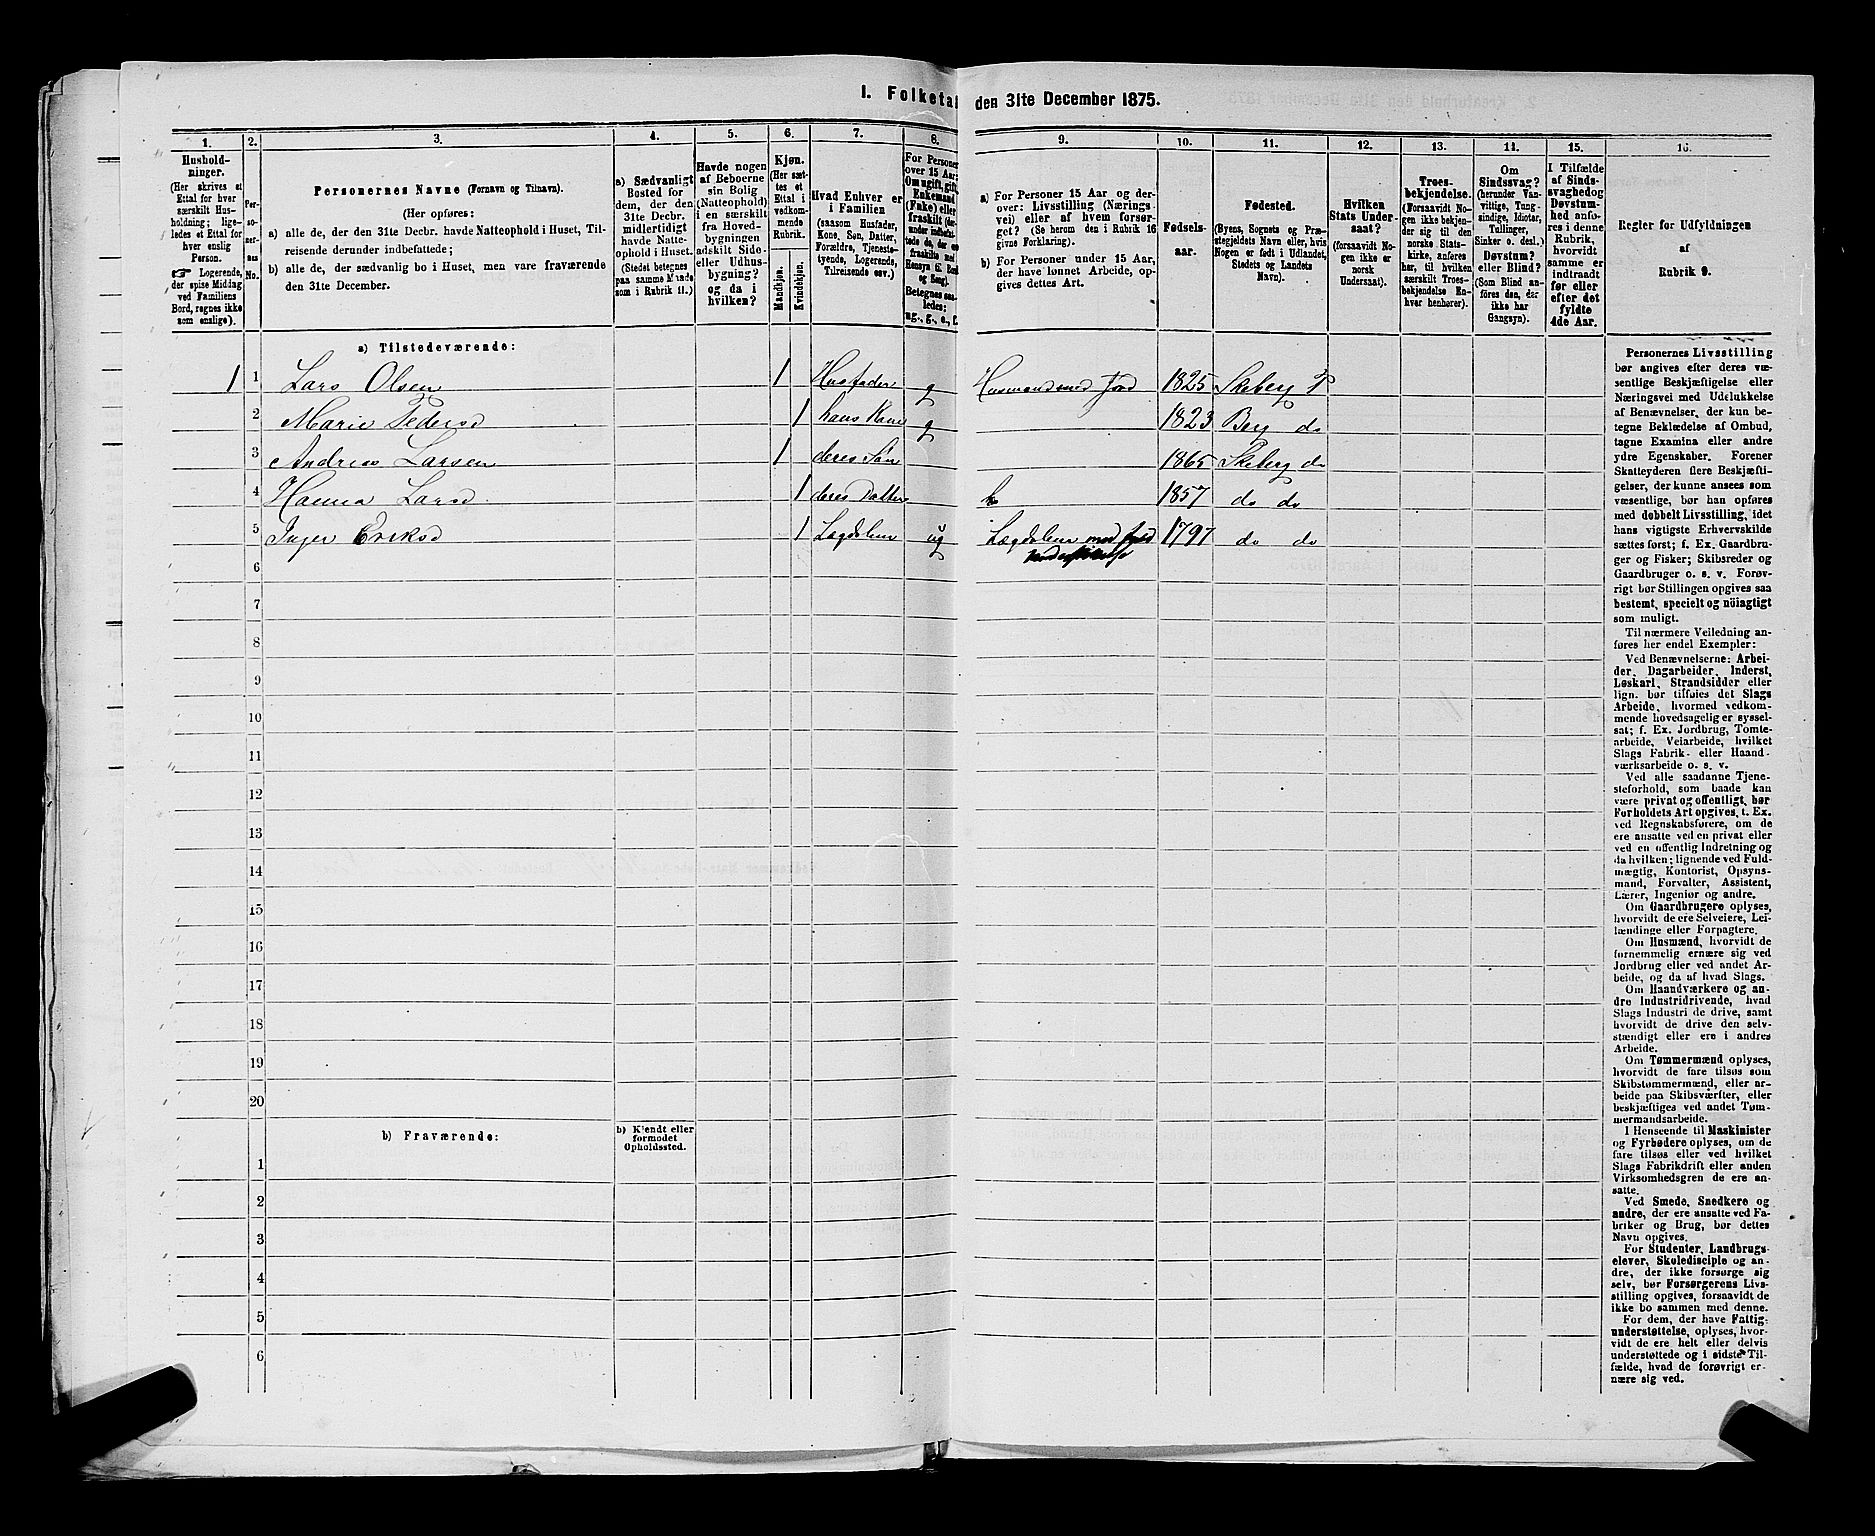 I. Folketal den 31te December 1875.
1.
Hushold-
ninger.
(Her skrives et
Ettal for hver
særskilt Hus-
holdning; lige-
ledes et Ettal for
hver enslig
Person.
☞ Logerende,
der spise Middag
ved Familiens
Bord, regnes ikke
som enslige).
2.
Per-
so-
ner-
nes
No.
3.
Personernes Navne (Fornavn og Tilnavn).
(Her opføres:
a) alle de, der den 31te Decbr. havde Natteophold i Huset, Til-
reisende derunder indbefattede;
b) alle de, der sædvanlig bo i Huset, men vare fraværende
den 31te December.
4.
a) Sædvanligt
Bosted for
dem, der den
31te Decbr.
midlertidigt
havde Natte-
ophold i Huset.
(Stedet betegnes
paa samme Maade
som i Rubrik 11.)
5.
Havde nogen
af Beboerne
sin Bolig
(Natteophold)
i en særskilt
fra Hoved-
bygningen
adskilt Side-
eller Udhus-
bygning?
og da i
hvilken?
6.
Kjøn.
(Her sæt-
tes et
Ettal i
vedkom-
mende
Rubrik.
Mandkjøn.
Kvindekjøn.
7.
Hvad Enhver er
i Familien
(saasom Husfader,
Kone, Søn, Datter,
Forældre, Tjeneste-
tyende, Logerende,
Tilreisende osv.)
8.
For Personer
over 15 Aar:
Om ugift, gift,
Enkemand
(Enke) eller
fraskilt
Betegnes saa-
ledes:
ug., g., e., f.
9.
a) For Personer 15 Aar og der-
over: Livsstilling (Nærings-
vei) eller af hvem forsør-
get? (Se herom den i Rubrik 16
givne Forklaring).
b) For Personer under 15 Aar,
der have lønnet Arbeide, op-
gives dettes Art.
10.
Fødsels-
aar.
11.
Fødested.
(Byens, Sognets og Præ-
stegjeldets Navn eller, hvis
Nogen er født i Udlandet,
Stedets og Landets
Navn).
12.
Hvilken
Stats Under-
saat?
(forsaavidt No-
gen ikke er
norsk
Undersaat).
13.
Troes-
bekjendelse.
(Forsaavidt No-
gen ikke bekjen-
der sig til den
norske Stats-
kirke, anføres
her, til hvilken
særskilt Troes-
bekjendelse En-
hver henhører).
14.
Om
Sindssvag?
(herunder Van-
vittige, Tung-
sindige, Idioter,
Tullinger,
Sinker o. desl.)
Døvstum?
eller Blind?
(Som Blind an-
føres den, der
ikke har
Gangsyn).
15.
I Tilfælde
af Sinds-
svaghed og
Døvstum-
hed anfø-
res i denne
Rubrik,
hvorvidt
samme er
indtraadt
før eller
efter det
fyldte
4de Aar.
16.
Regler for Udfyldningen
af
Rubrik 9.
a) Tilstedeværende:
1 1 Lars Olsen 1 Husfader g Husmand med Jord 1825 Skeberg P
2 Marie Pedersd 1 hans Kone g 1823 Berg do
3 Andreas Larsen 1 deres Søn 1865 Skeberg do
4 Hanna Larsd. 1 deres Datter 1857 do do
5 Inger Eriksd 1 Lægdslem ug Lægdslem 1797 do do
6
7
8
9
10
11
12
13
14
15
16
17
18
19
20
b) Fraværende:
b) Kjendt eller
formodet
Opholdssted.
1
2
3
4
5
6
Personernes Livsstilling
bør angives efter deres væ-
sentlige Beskjæftigelse eller
Næringsvei med Udelukkelse
af Benævnelser, der kun be-
tegne Beklædelse af Ombud,
tagne Examina eller andre
ydre Egenskaber. Forener
Skatteyderen flere Beskjæfti-
gelser, der kunne ansees som
væsentlige, bør han opføres
med dobbelt Livsstilling, idet
hans vigtigste Erhvervskilde
sættes først; f. Ex. Gaardbru-
ger og Fisker; Skibsreder og
Gaardbruger o. s. v. Forøv-
rigt bør Stillingen opgives saa
bestemt, specielt og nøiagtigt
som muligt.
Til nærmere Veiledning an-
føres her endel Exempler:
Ved Benævnelserne: Arbei-
der, Dagarbeider, Inderst,
Løskarl, Strandsidder eller
lign. bør tilføies det Slags
Arbeide, hvormed vedkom-
mende hovedsagelig er syssel-
sat; f. Ex. Jordbrug, Tomte-
arbeide, Veiarbeide, hvilket
Slags Fabrik- eller Haand-
værksarbeide o. s. v.
Ved alle saadanne Tjene-
steforhold, som baade kan
være privat og offentligt, bør
Forholdets Art opgives, t. Ex.
ved Regnskabsførere, om de
ere ansatte ved en privat eller
ved en offentlig Indretning og
da hvilken; lignende ved Fuld-
mægtig, Kontorist, Opsyns-
mand, Forvalter, Assistent,
Lærer, Ingeniør og andre.
Om Gaardbrugere oplyses,
hvorvidt de ere Selveiere, Lei-
lændinge eller Forpagtere.
Om Husmænd, hvorvidt de
fornemmelig ernære sig ved
Jordbrug eller ved andet Ar-
beide, og da af hvad Slags.
Om Haandværkere og an-
dre Industridrivende, hvad
Slags Industri de drive, samt
hvorvidt de drive den selv-
stændigt eller ere i andres
Arbeide.
Om Tømmermænd oplyses,
hvorvidt de fare tilsøs som
Skibstømmermænd, eller ar-
beide paa Skibsværfter, eller
beskjæftiges ved andet Tøm-
mermandsarbeide.
I Henseende til Maskinister
og Fyrbødere oplyses, om de
fare tilsøs eller ved hvilket
Slags Fabrikdrift eller anden
Virksomhedsgren de ere an-
satte.
Ved Smede, Snedkere og
andre, der ere ansatte ved Fa-
briker og Brug, bør dettes
Navn opgives.
For Studenter, Landbrugs-
elever, Skoledisciple og an-
dre, der ikke forsørge sig
selv, bør Forsørgerens Livs-
stilling opgives, forsaavidt de
ikke bo sammen med denne.
For dem, der have Fattig-
understøttelse, oplyses, hvor-
vidt de ere helt eller delvis
understøttede og i sidste Til-
fælde, hvad de forøvrigt er-
nære sig ved.